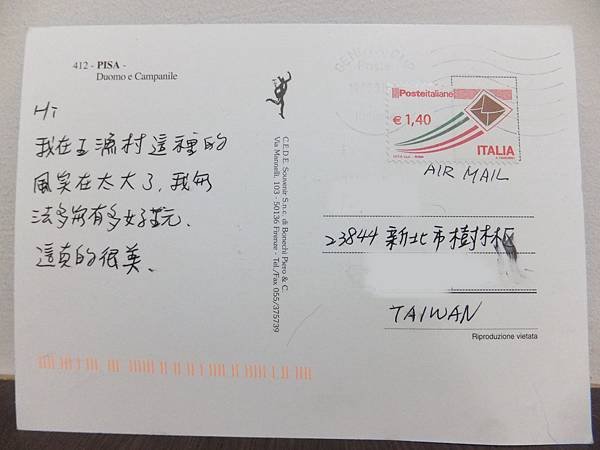 412 - PISA -
Duomo e Campanile
Hi
我在五漁村這裡的
風实在太大了,我無
法多有多好玩.
這真的很美、
C.E.D.E. Souvenir S.n.c. di Bonechi Piero & C.
Via Mannelli, 103 - 50136 Firenze - Tel./Fax 055/375739
GENOVA CMP
Poste
Posteitaliane
€ 1,40
ITALIA
AIR MAIL
23844 新北市樹林區
TAIWAN
Riproduzione vietata